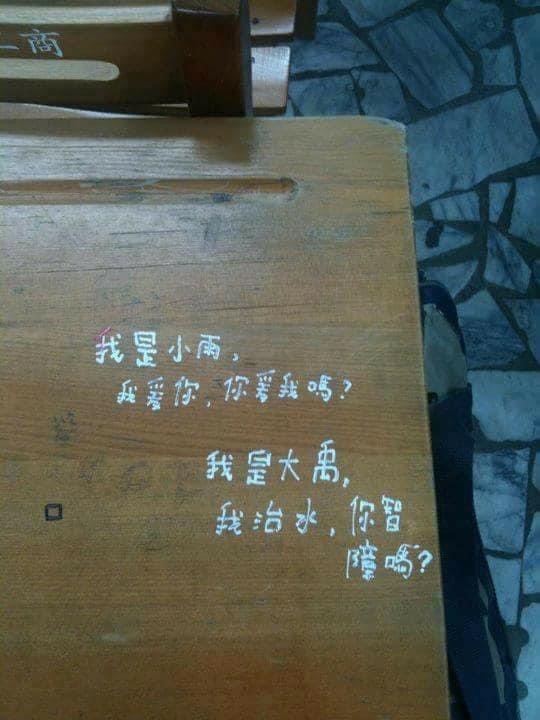 二商
我是小雨,
我爱你,你爱我嗎?
我是大禹,
我治水,你智
障嗎?